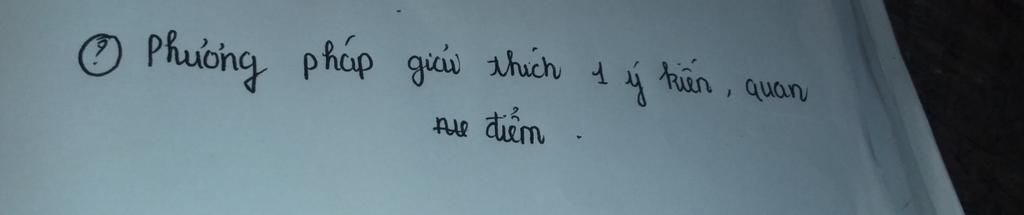 ? Phương pháp giải thích 1 ý kiến, quan
điểm.